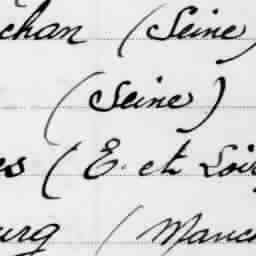 chan (Seine)
(Seine)
es (E. et Loir
urg (Manch